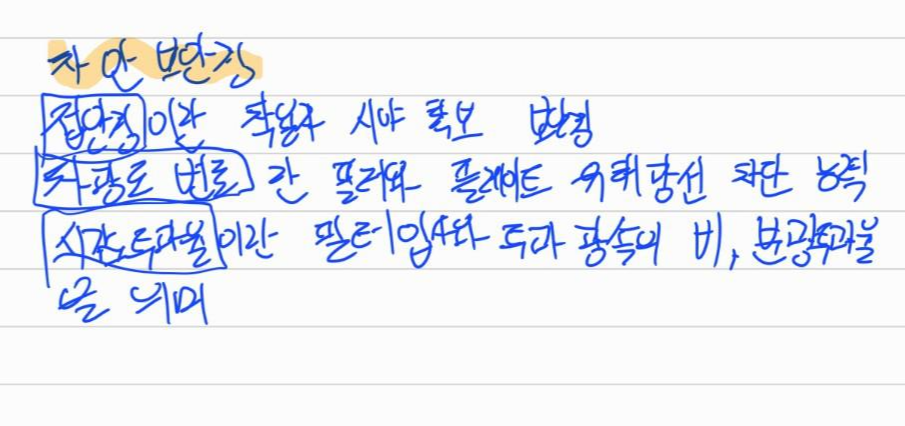 차안 보안경
접안경이란 착용자 시야 확보 보안경
차광도 번호란 필터와 플레이트 유해광선 차단 능력
시감투과율이란 필터 입사와 투과 광속의 비, 분광투과율
을 의미